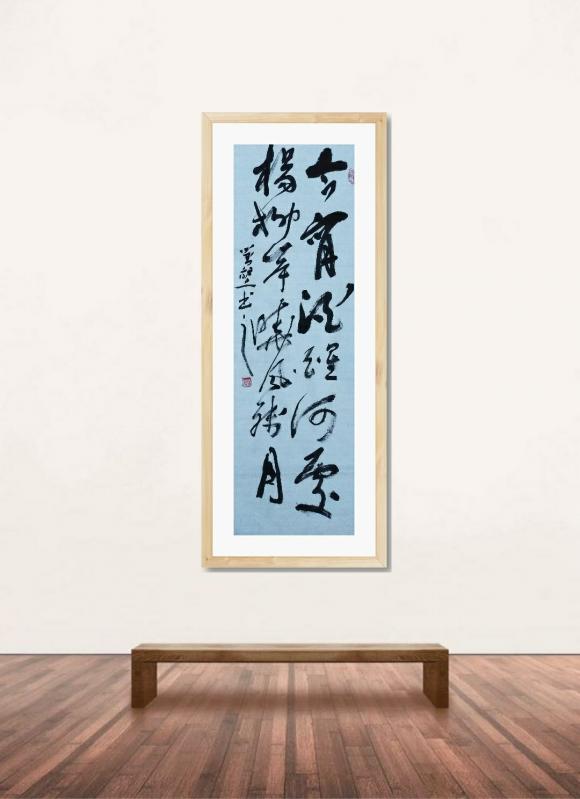 今宵酒醒何處
楊柳岸曉風殘月
书